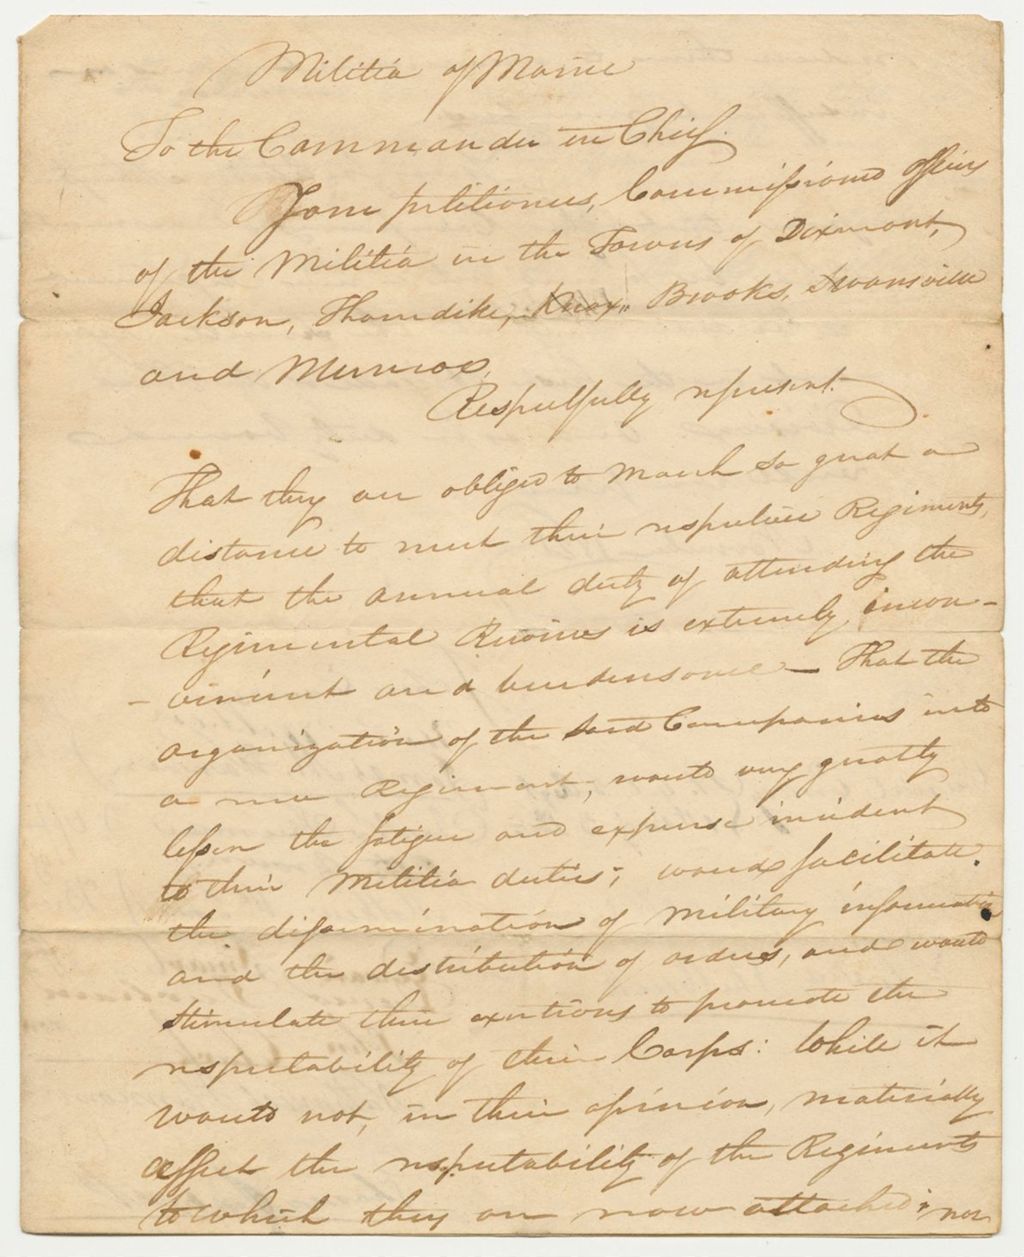 Militia of Maine
To the Commander in Chief.
Your petitioners, Commissioned officers
of the Militia in the Towns of Dixmont,
Jackson, Thorndike, Knox, Brooks, Swansville
and Munroe,
Respectfully represent.
That they are obliged to march so great a
distance to meet their respective Regiments,
that the annual duty of attending the
Regimental Reviews is extremely incon-
-vinient and burdensome — That the
organization of the said Companies into
a new Regiment, would very greatly
lessen the fatigue and expense incident
to their Militia duties; would facilitate
the dissemination of military information
and the distribution of orders, and would
stimulate their exertions to promote the
respectability of their Corps: While it
would not, in their opinion, materially
affect the respectability of the Regiments
to which they are now attached; nor